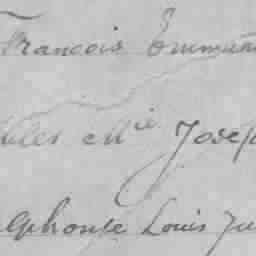 François Emmanu
ules Mie Josep
lphonse Louis Ju